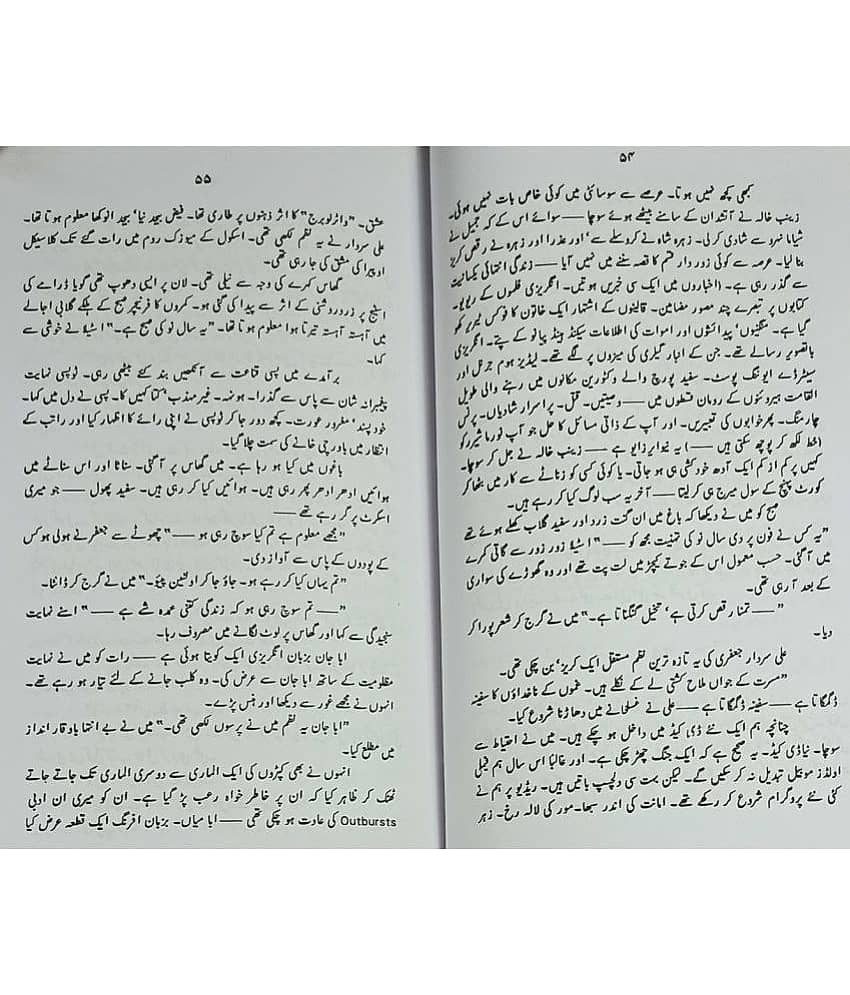 ۵۴
کبھی کچھ نہیں ہوتا۔ عرصے سے سوسائٹی میں کوئی خاص بات نہیں ہوئی۔
زینب خالہ نے آتشدان کے سامنے بیٹھے ہوئے سوچا —— سوائے اس کے کہ جمیل نے
شیاما نہرو سے شادی کر لی۔ زہرہ شاہ نے کروسلے سے' اور عذرا اور زہرہ نے رقص کریز
بنا لیا۔ عرصہ سے کوئی زور دار قسم کا قصہ سننے میں نہیں آیا —— زندگی انتہائی یکسانیت
سے گذر رہی ہے۔ (اخباروں میں ایک سی خبریں ہوتیں۔ انگریزی فلموں کے ریویو۔
کتابوں پر تبصرے چند مصور مضامین۔ قالینوں کے اشتہار ایک خاتون کا فوکس ٹیریر کھو
گیا ہے۔ منگنیوں' پیدائشوں اور اموات کی اطلاعات سیکنڈ ہینڈ پیانو کے پتے۔ انگریزی
باتصویر رسالے تھے۔ جن کے انبار گیلری کی میزوں پر لگے تھے۔ لیڈیز ہوم جرنل اور
سیٹرڈے ایوننگ پوسٹ۔ سفید پورچ والے وکٹورین مکانوں میں رہنے والی طویل
القامت ہیروئنوں کے رومان قسطوں میں —— وصیتیں۔ قتل۔ پراسرار شادیاں۔ پرنس
چارمنگ۔ پھر خوابوں کی تعبیریں۔ اور آپ کے ذاتی مسائل کا حل جو آپ نورما شیرر کو
(خط لکھ کر پوچھ سکتی ہیں ——) یہ نیو ایرز ایو ہے —— زینب خالہ نے جل کر سوچا۔
کہیں پر کم از کم ایک آدھ خودکشی ہی ہو جاتی۔ یا کوئی کسی کو زناٹے سے کار میں بٹھا کر
کورٹ پہنچ کے سول میرج ہی کر لیتا —— آخر یہ سب لوگ کیا کر رہے ہیں۔
صبح کو میں نے دیکھا کہ باغ میں ان گنت زرد اور سفید گلاب کھلے ہوئے تھے
"یہ کس نے فون پر دی سال نو کی تہنیت مجھ کو ——" اسٹیلا زور زور سے گاتی کمرے
میں آ گئی۔ حسب معمول اس کے جوتے کیچڑ میں لت پت تھے اور وہ گھوڑے کی سواری
کے بعد آ رہی تھی۔
"—— تمنا رقص کرتی ہے' تخیل گنگناتا ہے۔" میں نے گرج کر شعر پورا کر
دیا۔
علی سردار جعفری کی یہ تازہ ترین نظم مستقل ایک کریز' بن چکی تھی۔
"مسرت کے جواں ملاح کشتی لے کے نکلے ہیں۔ غموں کے ناخداؤں کا سفینہ
ڈگمگاتا ہے —— سفینہ ڈگمگاتا ہے —— علی نے غسلخانے میں دھاڑنا شروع کیا۔
چنانچہ ہم ایک نئے ڈی کیڈ میں داخل ہو چکے ہیں۔ میں نے احتیاط سے
سوچا۔ نیا ڈی کیڈ۔ یہ صحیح ہے کہ ایک جنگ چھڑ چکی ہے۔ اور غالباً اس سال ہم فیملی
اولڈز موبیل تبدیل نہ کر سکیں گے۔ لیکن بہت سی دلچسپ باتیں ہیں۔ ریڈیو پر ہم نے
کئی نئے پروگرام شروع کر رکھے تھے۔ امانت کی اندر سبھا۔ مور کی لالہ رخ۔ زہر
۵۵
عشق۔ "واٹرلو برج" کا اثر ذہنوں پر طاری تھا۔ فیض بیحد نیا' بیحد انوکھا معلوم ہوتا تھا۔
علی سردار نے یہ نظم لکھی تھی۔ اسکول کے میوزک روم میں رات گئے تک کلاسیکل
اوپیرا کی مشق کی جا رہی تھی۔
گھاس کہرے کی وجہ سے نیلی تھی۔ لان پر ایسی دھوپ تھی گویا ڈرامے کی
اسٹیج پر زرد روشنی کے اثر سے پیدا کی گئی ہو۔ کمروں کا فرنیچر صبح کے ہلکے گلابی اجالے
میں آہستہ آہستہ تیرتا ہوا معلوم ہوتا تھا۔ "یہ سال نو کی صبح ہے۔" اسٹیلا نے خوشی سے
کہا۔
برآمدے میں پسی قناعت سے آنکھیں بند کئے بیٹھی رہی۔ ٹوپسی نہایت
پیغمبرانہ شان سے پاس سے گذرا۔ ہونہہ۔ غیر مہذب' کتا کہیں کا۔ پسی نے دل میں کہا۔
خود پسند' مغرور عورت۔ کچھ دور جا کر ٹوپسی نے اپنی رائے کا اظہار کیا اور راتب کے
انتظار میں باورچی خانے کی سمت چلا گیا۔
باغوں میں کیا ہو رہا ہے۔ میں گھاس پر آ گئی۔ سناٹا اور اس سناٹے میں
ہوائیں ادھر ادھر پھر رہی ہیں۔ ہوائیں کیا کر رہی ہیں۔ سفید پھول —— جو میری
اسکرٹ پر گر رہے تھے ——
"مجھے معلوم ہے تم کیا سوچ رہی ہو ——" چھوٹے سے جعفر نے ہولی ہوکس
کے پودوں کے پاس سے آواز دی۔
"تم یہاں کیا کر رہے ہو۔ جاؤ جا کر اولٹین پیئو۔" میں نے گرج کر ڈانٹا۔
"—— تم سوچ رہی ہو کہ زندگی کتنی عمدہ شے ہے ——" اسنے نہایت
سنجیدگی سے کہا اور گھاس پر لوٹ لگانے میں مصروف رہا۔
ابا جان بزبان انگریزی ایک کویتا ہوئی ہے —— رات کو میں نے نہایت
مظلومیت کے ساتھ ابا جان سے عرض کی۔ وہ کلب جانے کے لئے تیار ہو رہے تھے۔
انہوں نے مجھے غور سے دیکھا اور ہنس پڑے۔
"ابا جان یہ نظم میں نے پرسوں لکھی تھی۔" میں نے بے انتہا باوقار انداز
میں مطلع کیا۔
انہوں نے بھی کپڑوں کی ایک الماری سے دوسری الماری تک جاتے جاتے
ٹھٹک کر ظاہر کیا کہ ان پر خاطر خواہ رعب پڑ گیا ہے۔ ان کو میری ان ادبی
Outbursts کی عادت ہو چکی تھی —— ابا میاں۔ بزبان افرنگ ایک قطعہ عرض کیا